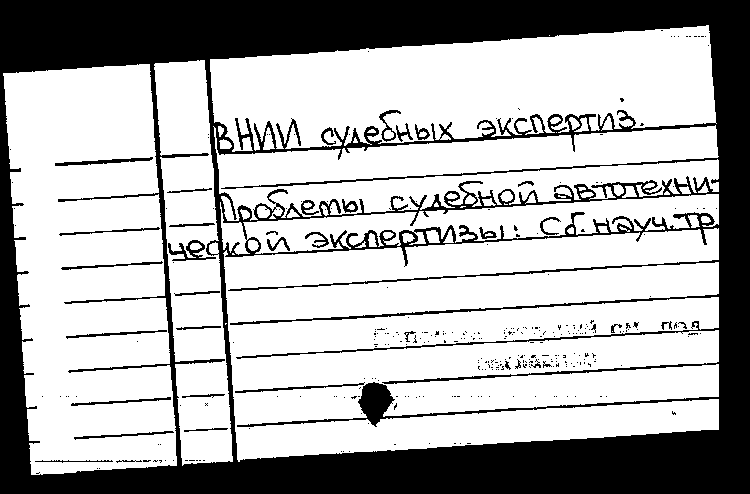 ВНИИ судебных экспертиз.
Проблемы судебной автотехни-
ческой экспертизы: Сб. науч. тр.
см. под